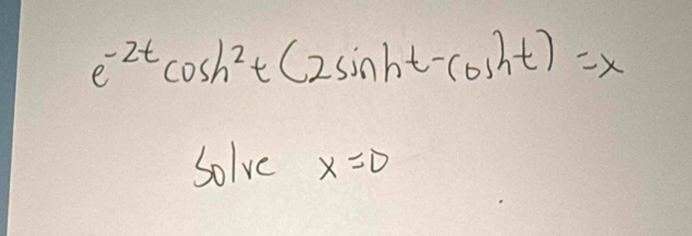 e⁻²ᵗ cosh²t (2sinht-cosht) = x
Solve x=0